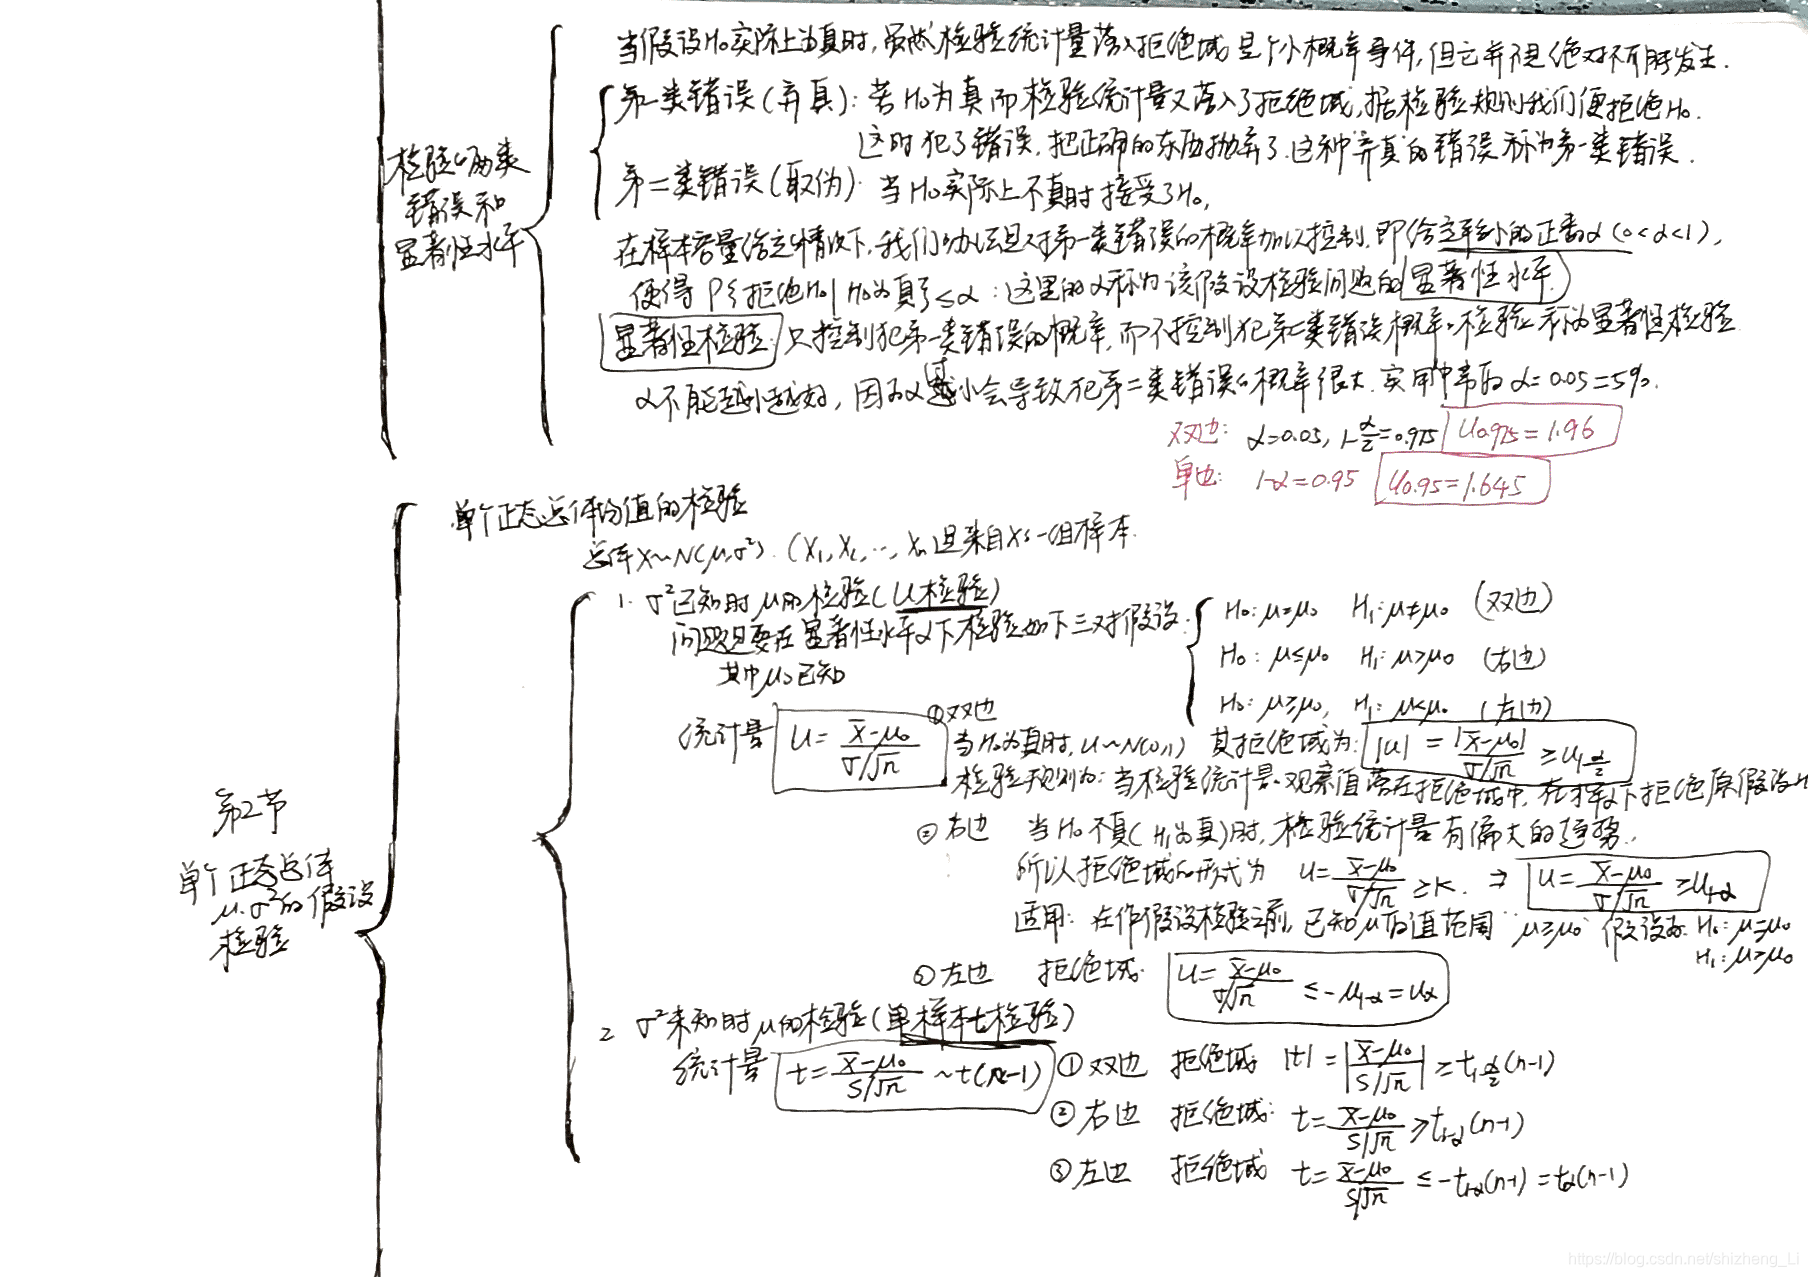 当假设H₀实际上为真时,虽然检验统计量落入拒绝域是个小概率事件,但它并不是绝对不可能发生.
检验的两类
错误和
显著性水平
第一类错误(弃真): 若H₀为真而检验统计量又落入了拒绝域,据检验规则我们便拒绝H₀.
这时犯了错误,把正确的东西抛弃了.这种"弃真"的错误称为第一类错误.
第二类错误(取伪). 当H₀实际上不真时接受了H₀,
在样本容量给定情况下,我们的办法是对第一类错误的概率加以控制,即给定较小的正数α(0<α<1),
使得 P{拒绝H₀|H₀为真}≤α:这里的α称为该假设检验问题的显著性水平.
显著性检验:只控制犯第一类错误的概率,而不控制犯第二类错误概率的检验称为显著性检验
α不能越小越好, 因为α越小会导致犯第二类错误的概率很大.实用中常取α=0.05=5%.
双边: α=0.05, 1-α/2=0.975 U₀.₉₇₅=1.96
单边: 1-α=0.95 U₀.₉₅=1.645
第2节
单个正态总体
μ.σ²的假设
检验
单个正态总体均值的检验
总体X~N(μ,σ²). (X₁,X₂,…,Xₙ)是来自X的一组样本.
1. σ²已知时μ的检验(U检验)
问题是要在显著性水平α下检验如下三对假设:
其中μ₀已知
H₀:μ=μ₀ H₁:μ≠μ₀ (双边)
H₀:μ≤μ₀ H₁:μ>μ₀ (右边)
H₀:μ≥μ₀, H₁:μ<μ₀ (左边)
统计量 U=(X̄-μ₀)/(σ/√n)
①双边
当H₀为真时,U~N(0,1) 其拒绝域为: |u|=|X̄-μ₀|/(σ/√n)≥u₁₋α/₂
检验规则为:当检验统计量的观察值落在拒绝域中,在水平α下拒绝原假设H
②右边 当H₀不真(H₁为真)时,检验统计量有偏大的趋势.
所以拒绝域的形式为 u=(X̄-μ₀)/(σ/√n)≥K. ⇒ U=(X̄-μ₀)/(σ/√n)≥u₁₋α
适用: 在作假设检验之前,已知μ的值范围 μ≥μ₀ 假设为: H₀:μ=μ₀
H₁:μ>μ₀
③左边 拒绝域: U=(X̄-μ₀)/(σ/√n)≤-μ₁₋α=uα
2 σ²未知时μ的检验(单样本t检验)
统计量 t=(X̄-μ₀)/(S/√n)~t(n-1)
①双边 拒绝域 |t|=|(X̄-μ₀)/(S/√n)|≥t₁₋α/₂(n-1)
②右边 拒绝域: t=(X̄-μ₀)/(S/√n)≥t₁₋α(n-1)
③左边 拒绝域 t=(X̄-μ₀)/(S/√n)≤-t₁₋α(n-1)=tα(n-1)
https://blog.csdn.net/shizheng_Li